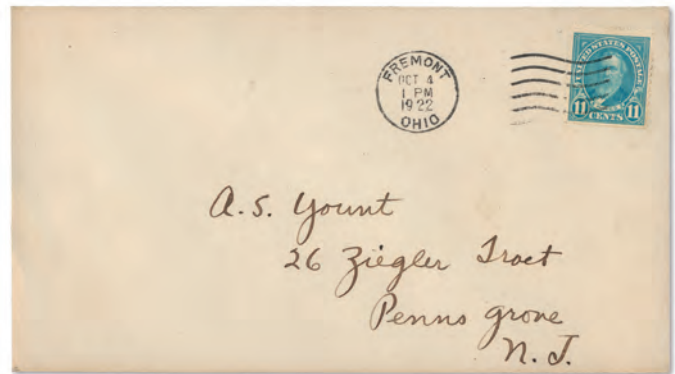 FREMONT
OCT 4
1 PM
1922
OHIO
UNITED STATES POSTAGE
11 CENTS 11
A. S. Yount
26 Ziegler Tract
Penns grove
N. J.